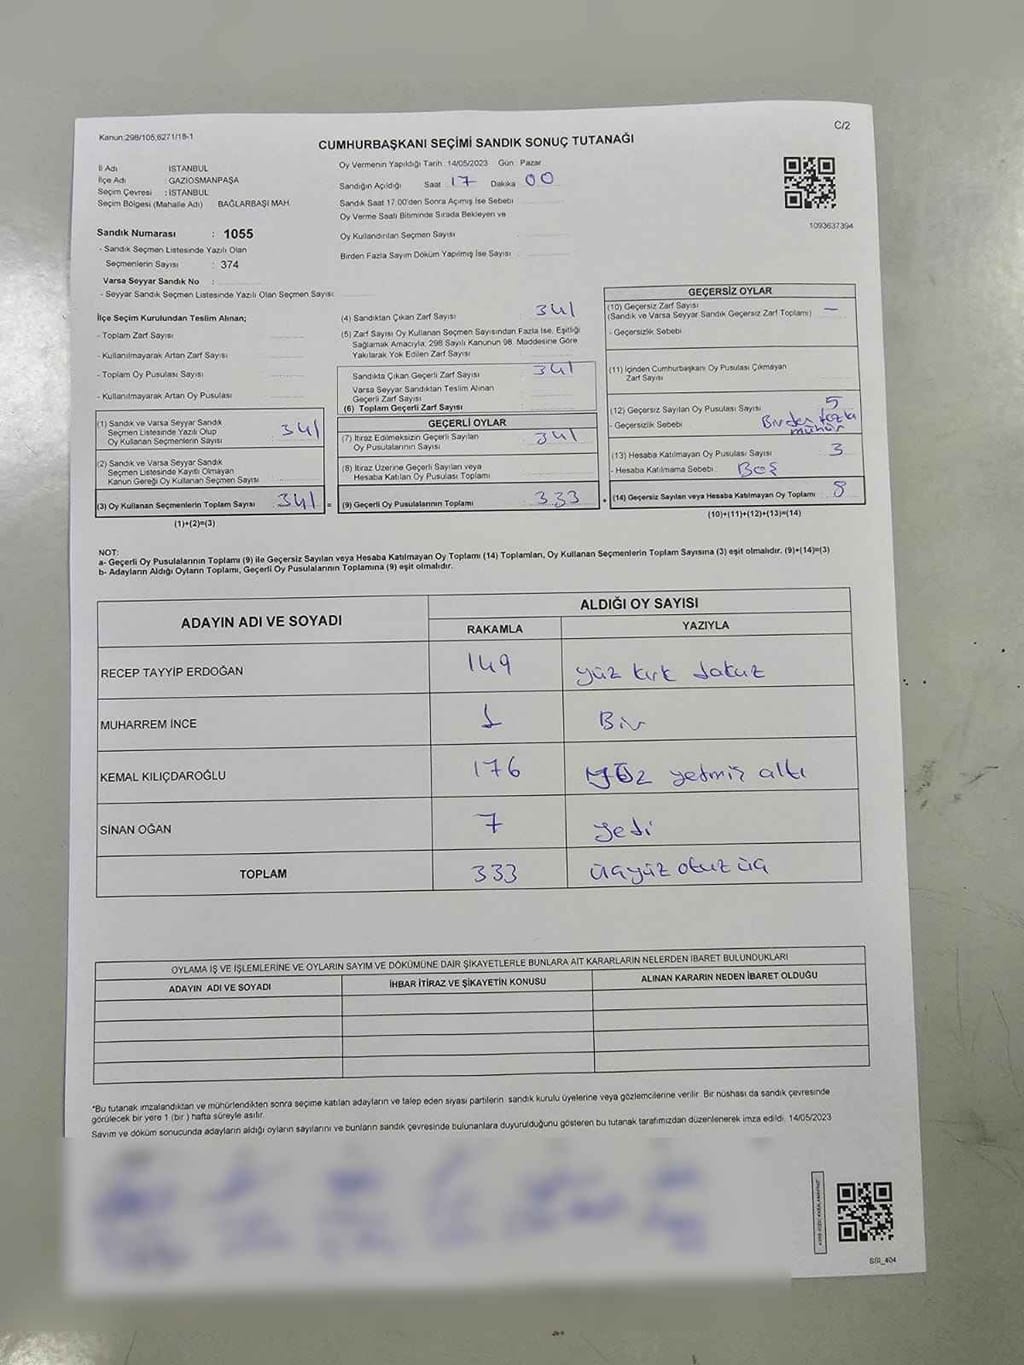 Kanun:298/105,6271/18-1
C/2
CUMHURBAŞKANI SEÇİMİ SANDIK SONUÇ TUTANAĞI
İl Adı : İSTANBUL
İlçe Adı : GAZİOSMANPAŞA
Seçim Çevresi : İSTANBUL
Seçim Bölgesi (Mahalle Adı) BAĞLARBAŞI MAH.
Sandık Numarası : 1055
- Sandık Seçmen Listesinde Yazılı Olan
Seçmenlerin Sayısı : 374
Varsa Seyyar Sandık No :
- Seyyar Sandık Seçmen Listesinde Yazılı Olan Seçmen Sayısı
Oy Vermenin Yapıldığı Tarih : 14/05/2023 Gün : Pazar
Sandığın Açıldığı Saat 17 Dakika 00
Sandık Saat 17.00'den Sonra Açımış İse Sebebi
Oy Verme Saati Bitiminde Sırada Bekleyen ve
Oy Kullandırılan Seçmen Sayısı
Birden Fazla Sayım Döküm Yapılmış İse Sayısı
1093637394
İlçe Seçim Kurulundan Teslim Alınan;
- Toplam Zarf Sayısı
- Kullanılmayarak Artan Zarf Sayısı
- Toplam Oy Pusulası Sayısı
- Kullanılmayarak Artan Oy Pusulası
(1) Sandık ve Varsa Seyyar Sandık
Seçmen Listesinde Yazılı Olup
Oy Kullanan Seçmenlerin Sayısı 341
(2) Sandık ve Varsa Seyyar Sandık
Seçmen Listesinde Kayıtlı Olmayan
Kanun Gereği Oy Kullanan Seçmen Sayısı
(3) Oy Kullanan Seçmenlerin Toplam Sayısı 341 =
(1)+(2)=(3)
(4) Sandıktan Çıkan Zarf Sayısı 341
(5) Zarf Sayısı Oy Kullanan Seçmen Sayısından Fazla İse, Eşitliği
Sağlamak Amacıyla, 298 Sayılı Kanunun 98. Maddesine Göre
Yakılarak Yok Edilen Zarf Sayısı
Sandıkta Çıkan Geçerli Zarf Sayısı 341
Varsa Seyyar Sandıktan Teslim Alınan
Geçerli Zarf Sayısı
(6) Toplam Geçerli Zarf Sayısı
GEÇERLİ OYLAR
(7) İtiraz Edilmeksizin Geçerli Sayılan
Oy Pusulalarının Sayısı 341
(8) İtiraz Üzerine Geçerli Sayılan veya
Hesaba Katılan Oy Pusulası Toplamı
(9) Geçerli Oy Pusulalarının Toplamı 333 +
GEÇERSİZ OYLAR
(10) Geçersiz Zarf Sayısı
(Sandık ve Varsa Seyyar Sandık Geçersiz Zarf Toplamı) –
- Geçersizlik Sebebi
(11) İçinden Cumhurbaşkanı Oy Pusulası Çıkmayan
Zarf Sayısı
(12) Geçersiz Sayılan Oy Pusulası Sayısı 5
- Geçersizlik Sebebi Birden fazla
mühür
(13) Hesaba Katılmayan Oy Pusulası Sayısı 3
- Hesaba Katılmama Sebebi Boş
(14) Geçersiz Sayılan veya Hesaba Katılmayan Oy Toplamı 8
(10)+(11)+(12)+(13)=(14)
NOT:
a- Geçerli Oy Pusulalarının Toplamı (9) ile Geçersiz Sayılan veya Hesaba Katılmayan Oy Toplamı (14) Toplamları, Oy Kullanan Seçmenlerin Toplam Sayısına (3) eşit olmalıdır. (9)+(14)=(3)
b- Adayların Aldığı Oyların Toplamı, Geçerli Oy Pusulalarının Toplamına (9) eşit olmalıdır.
ADAYIN ADI VE SOYADI
ALDIĞI OY SAYISI
RAKAMLA YAZIYLA
RECEP TAYYİP ERDOĞAN 149 yüz kırk dokuz
MUHARREM İNCE 1 Bir
KEMAL KILIÇDAROĞLU 176 yüz yetmiş altı
SİNAN OĞAN 7 yedi
TOPLAM 333 üçyüz otuz üç
OYLAMA İŞ VE İŞLEMLERİNE VE OYLARIN SAYIM VE DÖKÜMÜNE DAİR ŞİKAYETLERLE BUNLARA AİT KARARLARIN NELERDEN İBARET BULUNDUKLARI
ADAYIN ADI VE SOYADI İHBAR İTİRAZ VE ŞİKAYETİN KONUSU ALINAN KARARIN NEDEN İBARET OLDUĞU
*Bu tutanak imzalandıktan ve mühürlendikten sonra seçime katılan adayların ve talep eden siyasi partilerin sandık kurulu üyelerine veya gözlemcilerine verilir. Bir nüshası da sandık çevresinde
görülecek bir yere 1 (bir ) hafta süreyle asılır.
Sayım ve döküm sonucunda adayların aldığı oyların sayılarını ve bunların sandık çevresinde bulunanlara duyurulduğunu gösteren bu tutanak tarafımızdan düzenlenerek imza edildi. 14/05/2023